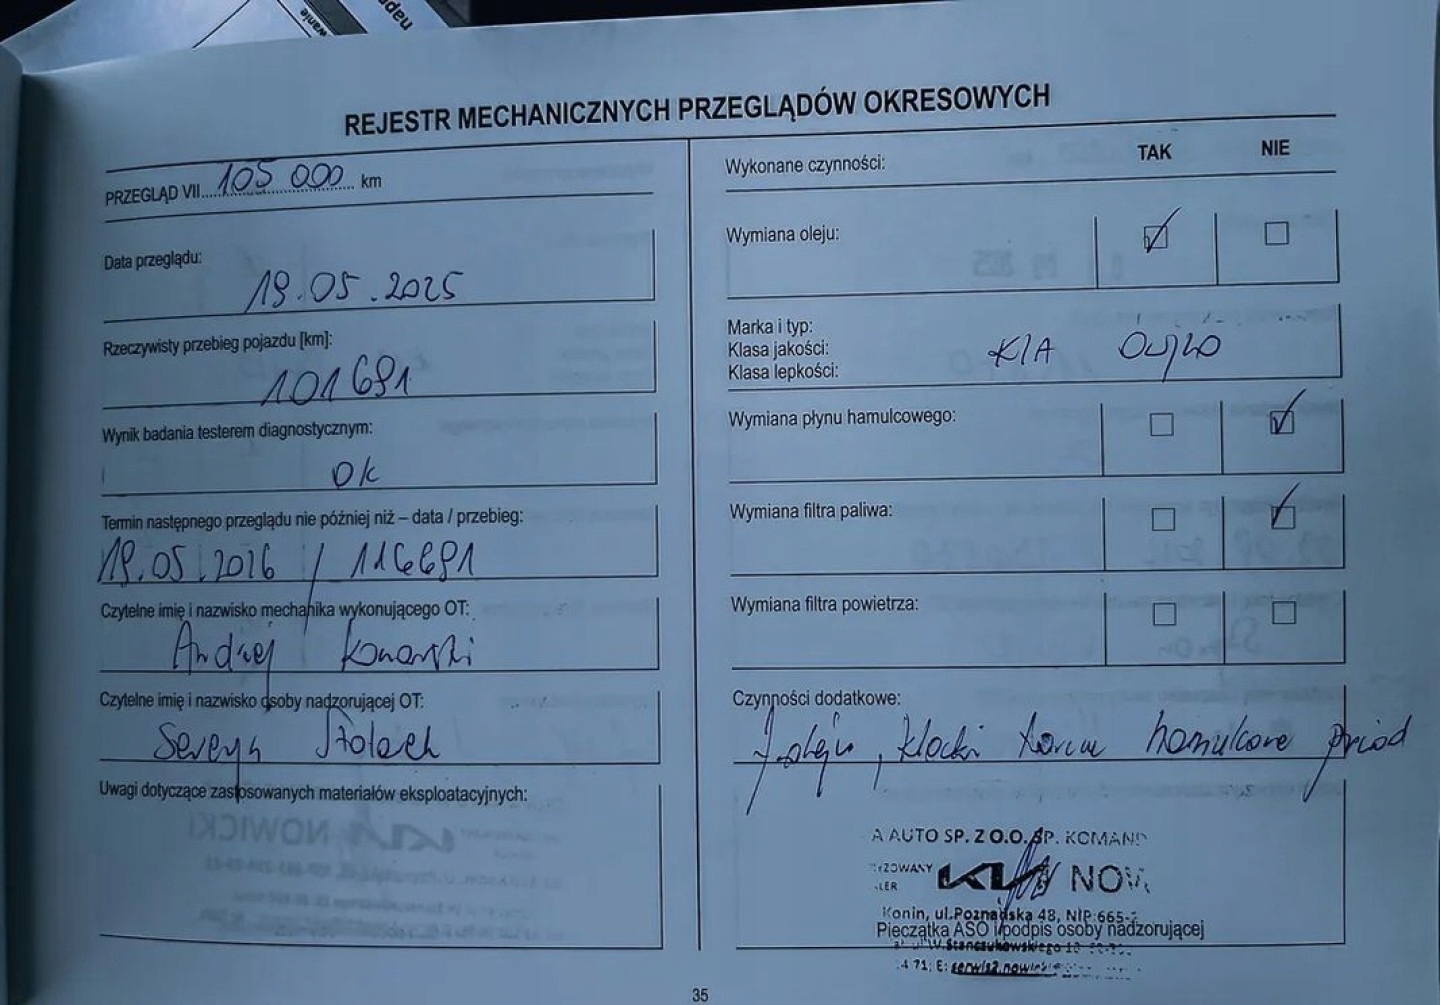 wanie
napę
REJESTR MECHANICZNYCH PRZEGLĄDÓW OKRESOWYCH
PRZEGLĄD VII....105 000.... km
Data przeglądu:
19.05.2025
Rzeczywisty przebieg pojazdu [km]:
101691
Wynik badania testerem diagnostycznym:
Ok
Termin następnego przeglądu nie później niż – data / przebieg:
19.05.2026 / 116691
Czytelne imię i nazwisko mechanika wykonującego OT:
Andrzej
Czytelne imię i nazwisko osoby nadzorującej OT:
Seweryn
Uwagi dotyczące zastosowanych materiałów eksploatacyjnych:
Wykonane czynności: TAK NIE
Wymiana oleju:
Marka i typ:
Klasa jakości:
Klasa lepkości:
KIA
Wymiana płynu hamulcowego:
Wymiana filtra paliwa:
Wymiana filtra powietrza:
Czynności dodatkowe:
f. oleju, klocki tarcze hamulcowe przód
A AUTO SP. Z O.O. SP. KOMAN
YZOWANY
LER
KIA NOW
Konin, ul.Poznańska 48, NIP:665-
Pieczątka ASO i podpis osoby nadzorującej
W.Stanczukowskiego
4 71; E: serwis2.nowi
35